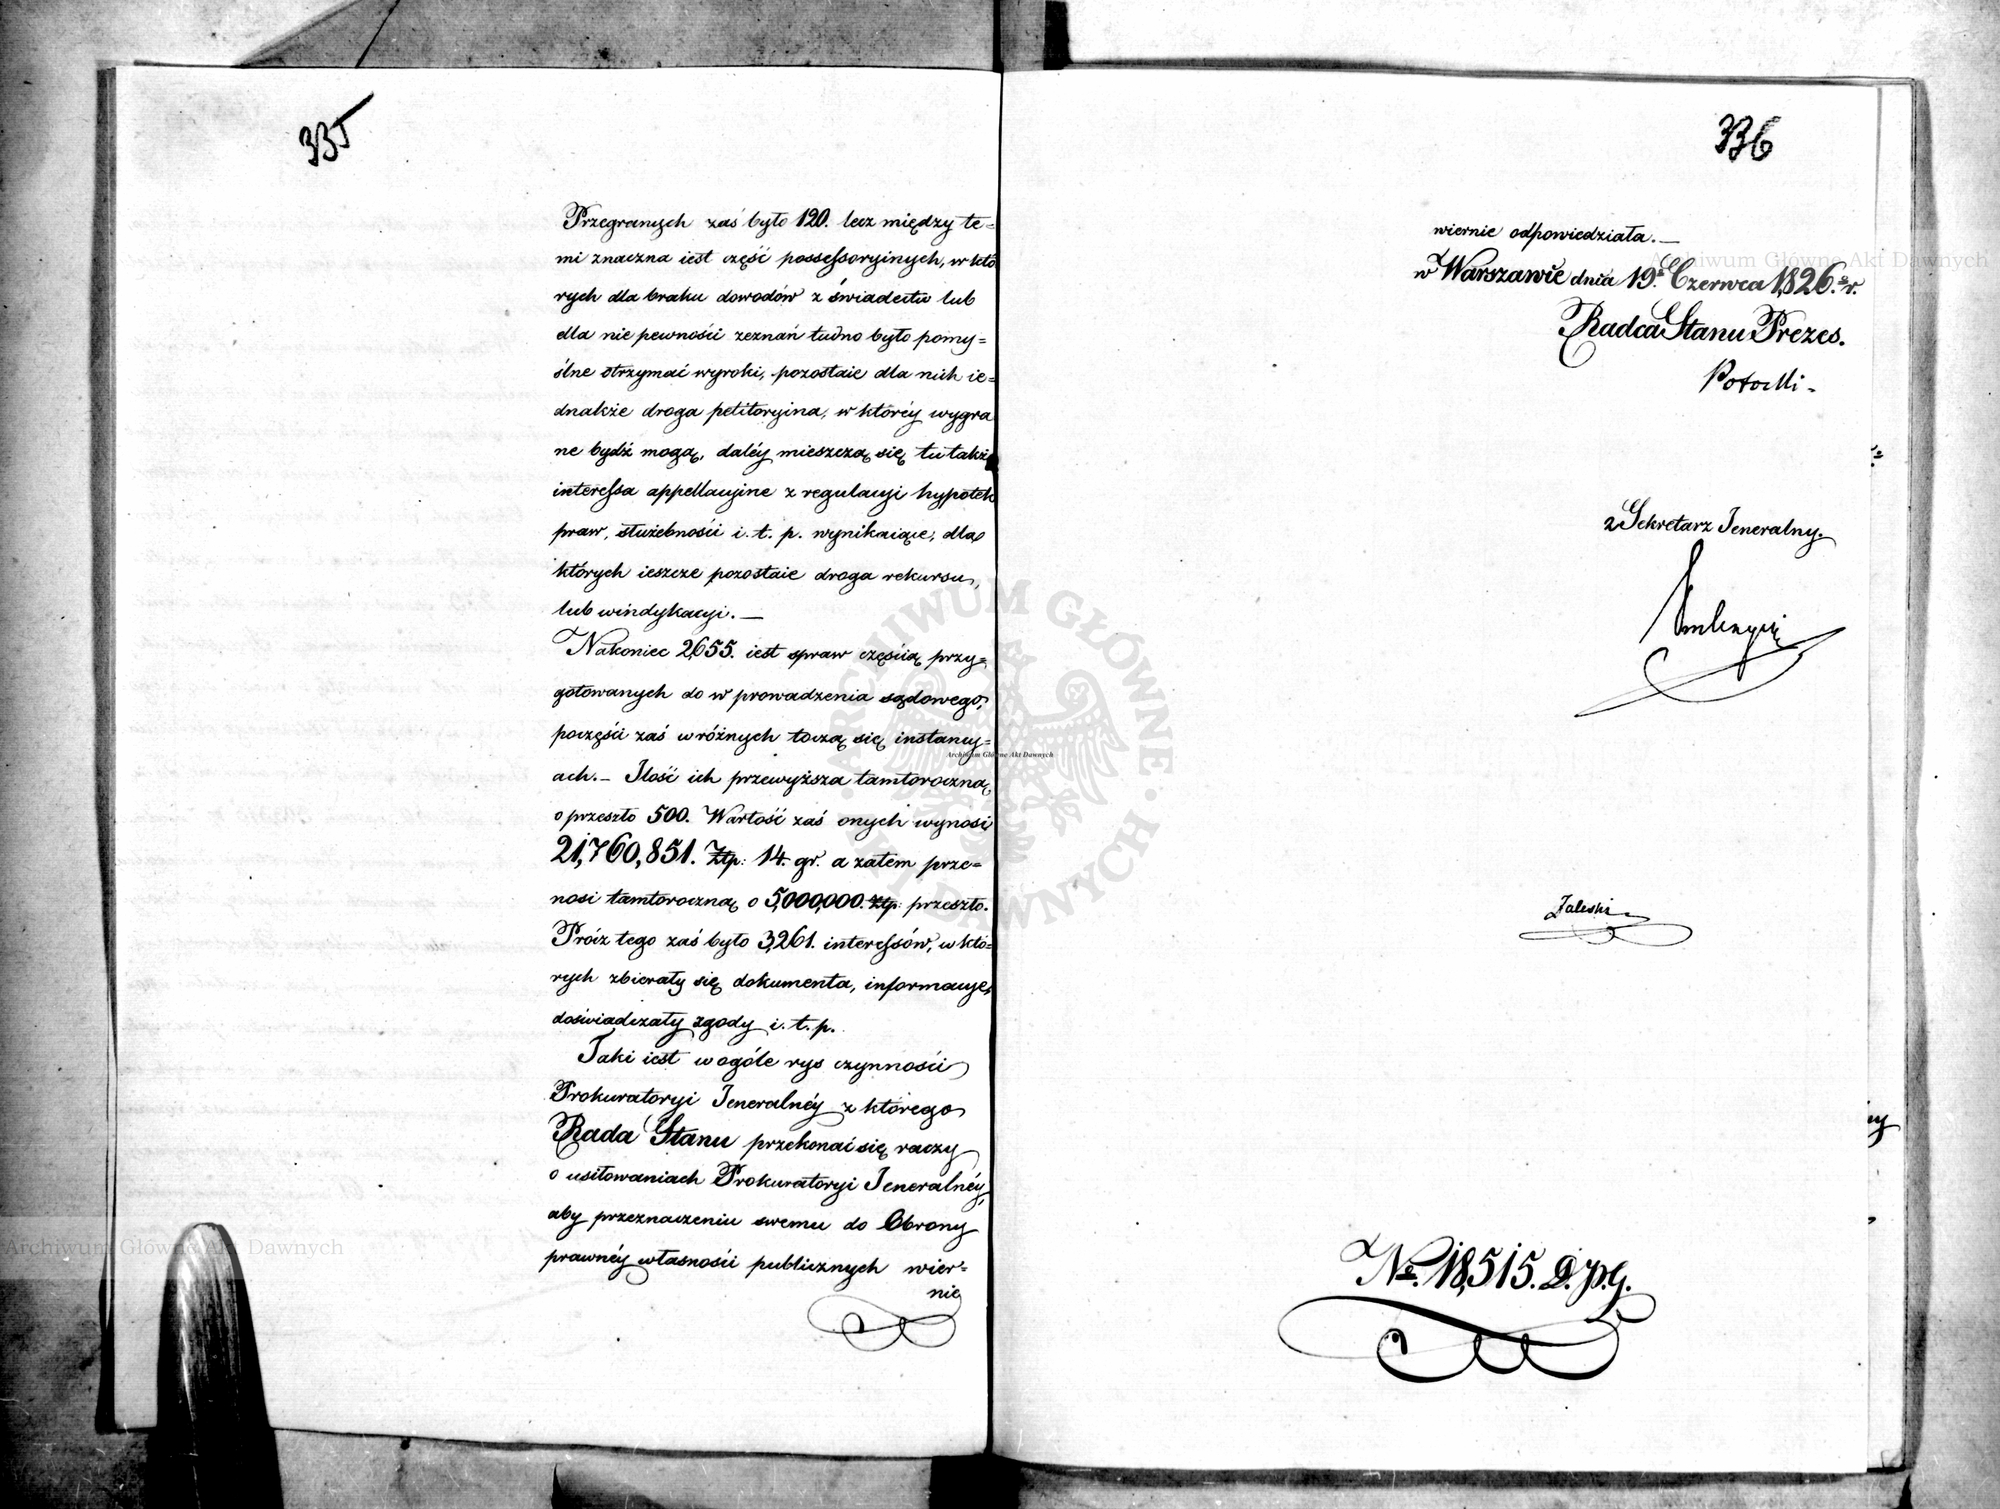 335
Przegranych zaś było 120. lecz między te=
mi znaczna iest część possessoryinych, w któ
rych dla braku dowodów z świadectw lub
dla nie pewności zeznań tudno było pomy=
ślne otrzymać wyroki, pozostaie dla nich ie=
dnakże droga petitoryina, w któréy wygra
ne bydź mogą, daléy mieszczą się tu także
interessa appellacyine z regulacyi hypotek
praw, służebności i. t. p. wynikaiące, dla
których ieszcze pozostaie droga rekursu,
lub windykacyi. —
Nakoniec 2,655. iest spraw częścią przy=
gotowanych do w prowadzenia sądowego,
poczęści zaś w różnych toczą się instancy=
ach. — Ilość ich przewyższa tamtoroczną
o przeszło 500. Wartość zaś onych wynosi
21,760,851. Złp: 14. gr. a zatem prze=
nosi tamtoroczną o 5,000,000. Złp: przeszło.
Prócz tego zaś było 3,261. interessów, w któ=
rych zbierały się dokumenta, informacye,
doświadczały zgody i. t. p.
Taki iest w ogóle rys czynności
Prokuratoryi Jeneralnéy z którego
Rada Stanu przekonać się raczy
o usiłowaniach Prokuratoryi Jeneralnéy,
aby przeznaczeniu swemu do Obrony
prawnéy własności publicznych wier=
nie
336
wiernie odpowiedziała. —
w Warszawie dnia 19º Czerwca 1,826. r.
Radca Stanu Prezes.
Potocki -
Sekretarz Jeneralny.
Zaleski
No. 18,515. D. p. G.
ARCHIWUM GŁÓWNE AKT DAWNYCH
Archiwum Główne Akt Dawnych
Archiwum Główne Akt Dawnych
Archiwum Główne Akt Dawnych